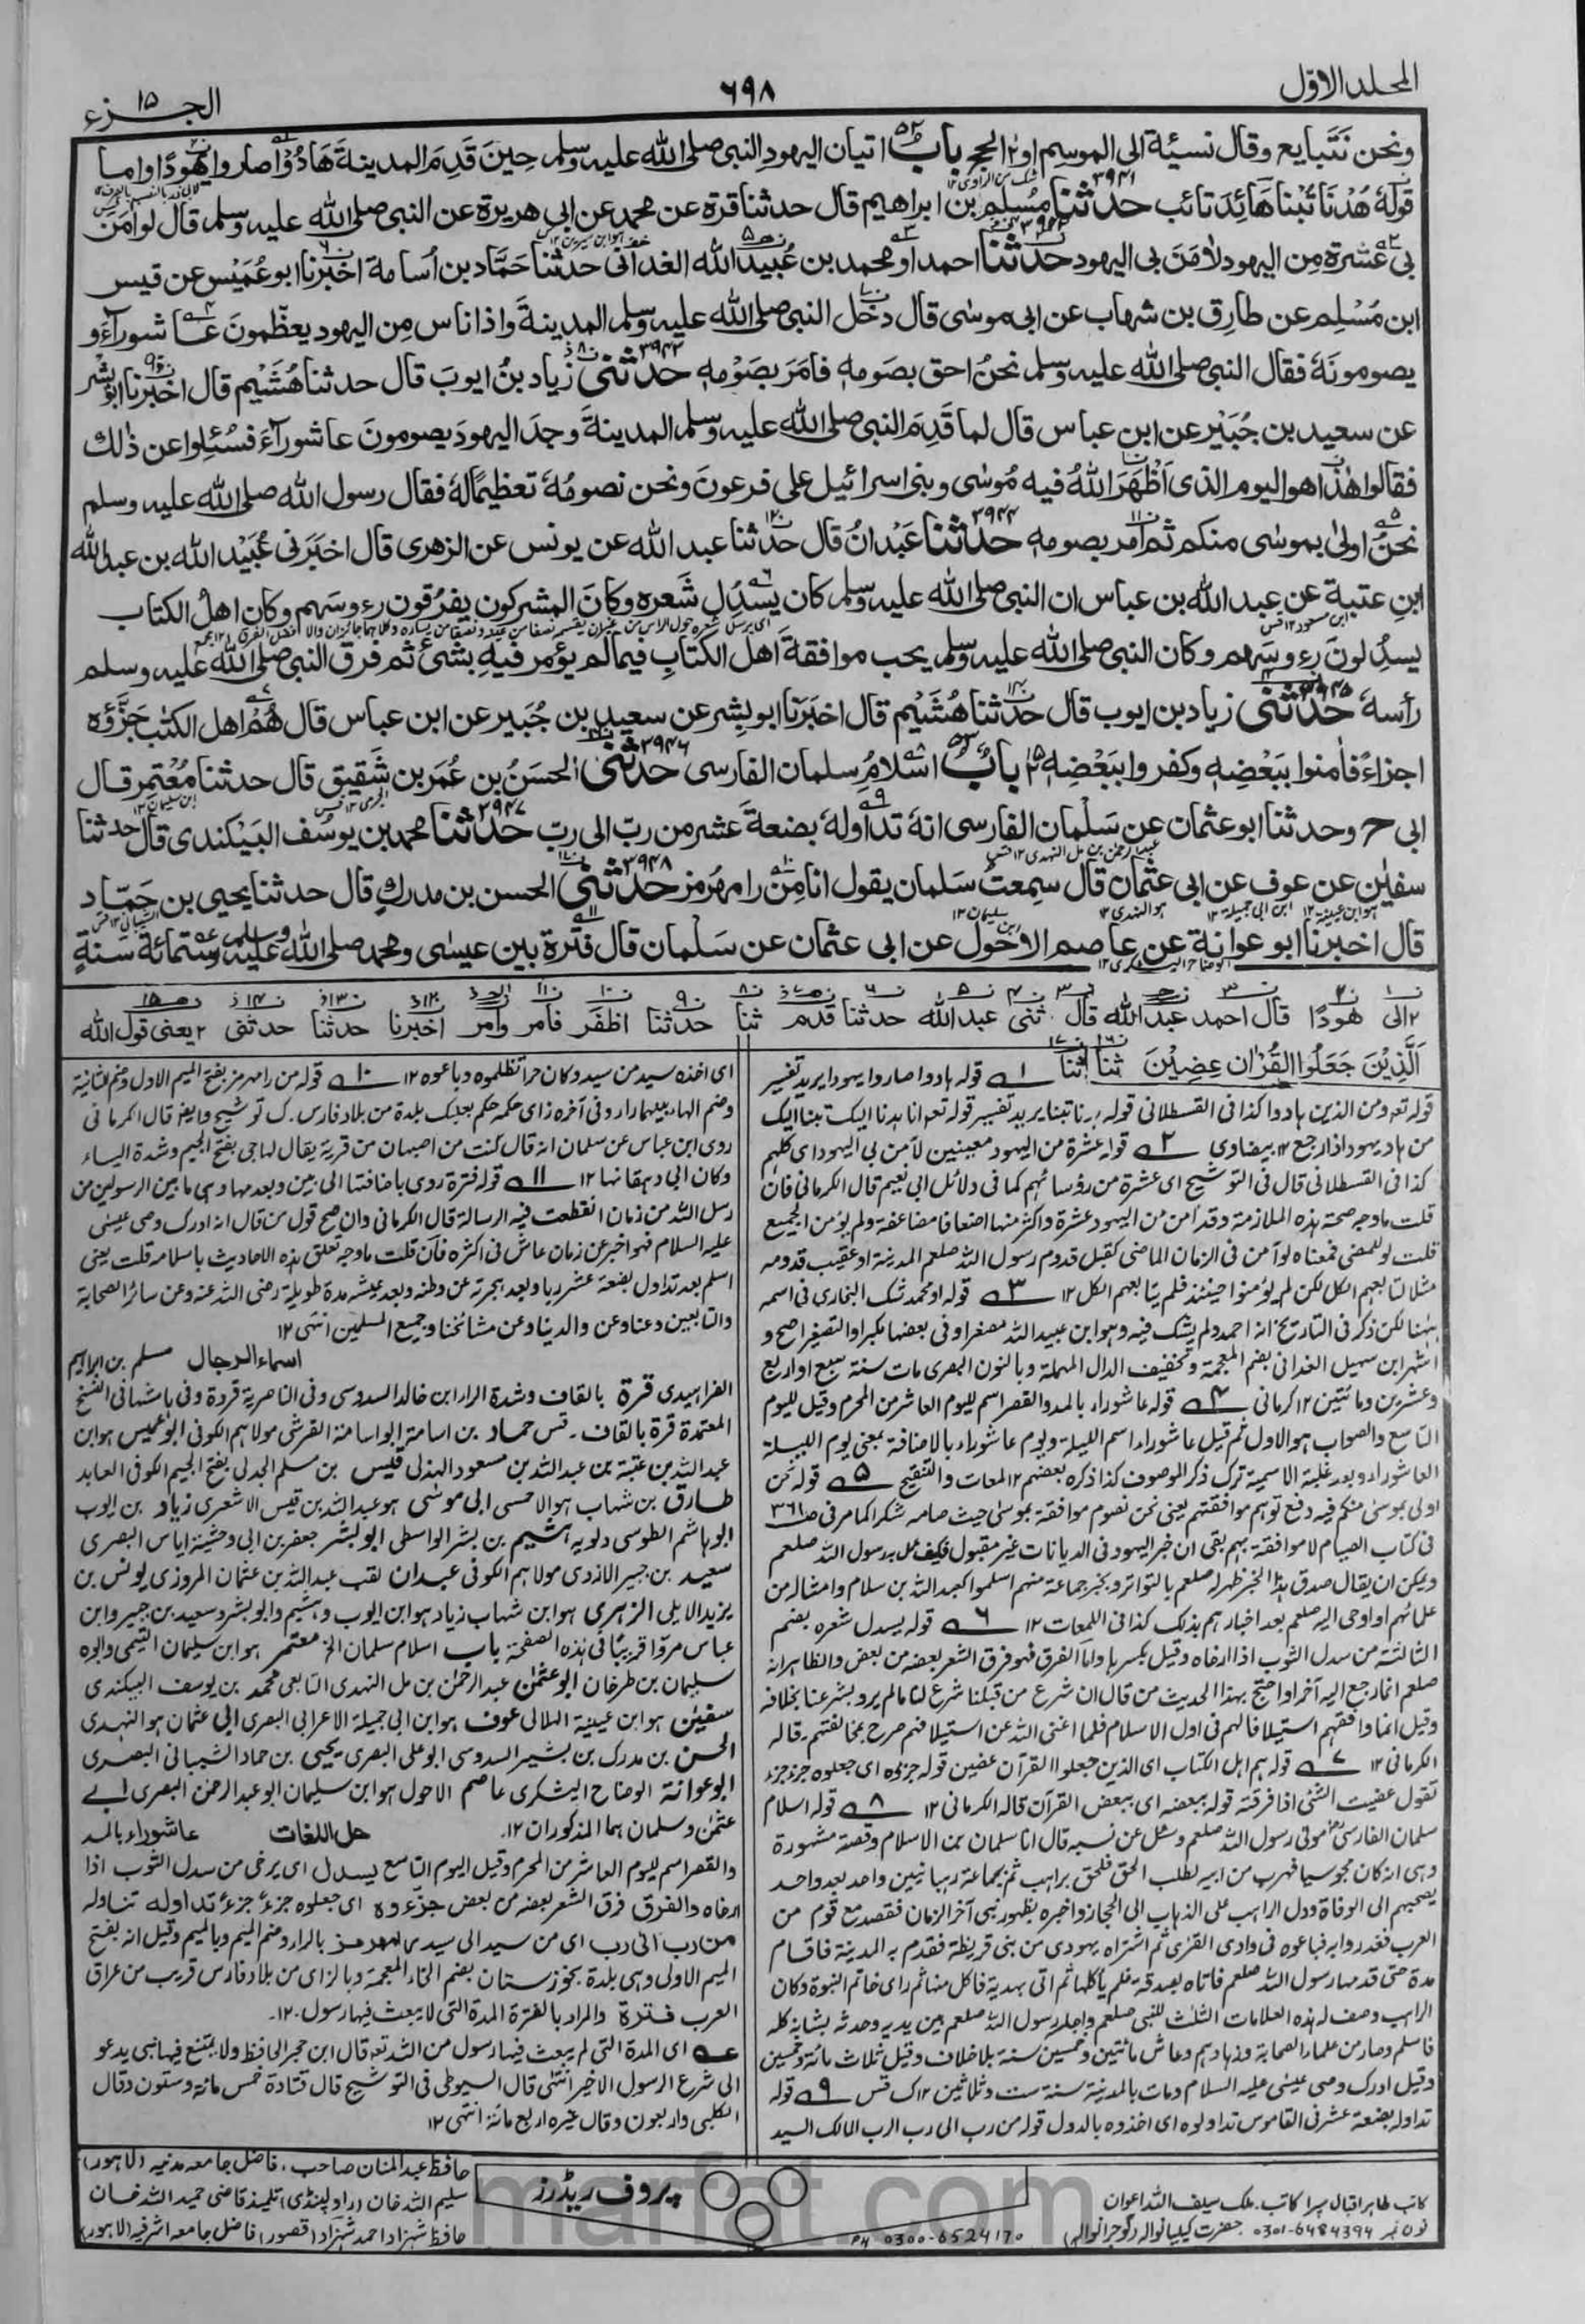 المجلد الاوّل
٦٩٨
الجزء ١٥
ونحن نَتَبايع وقال نسيئة الى الموسم او الحج باب اتيان اليهود النبي صلى الله عليه وسلم حينَ قَدِمَ المدينةَ هَادُوْا صاروا يهودًا واما
قولهٗ هُدْنَا تُبْنا هَائِد تائب حدثنا مُسْلم بن ابراهيم قال حدثنا قرة عن محمد عن ابي هريرة عن النبي صلى الله عليه وسلم قال لو اٰمَنَ
بي عشرة مِن اليهود لاٰمَنَ بي اليهود حدثنا احمد او محمد بن عُبيد الله الغداني حدثنا حَمَّاد بن اُسامة اخبرنا ابو عُمَيْس عن قيس
ابن مُسْلِم عن طارِق بن شهاب عن ابي موسٰى قال دخل النبي صلى الله عليه وسلم المدينةَ واذا ناس مِن اليهود يعظّمونَ عاشوراءَ و
يصومونَهٗ فقال النبي صلى الله عليه وسلم نحنُ احق بصومهٖ فامَرَ بصَوْمِهٖ حدثني زياد بنُ ايوبَ قال حدثنا هُشَيْم قال اخبرنا ابو بشر
عن سعيد بن جُبَيْر عن ابن عباس قال لما قَدِمَ النبي صلى الله عليه وسلم المدينةَ وجدَ اليهودَ يصومونَ عاشوراءَ فسُئِلوا عن ذٰلك
فقالوا هٰذا هو اليوم الذى اَظْهَرَ اللهُ فيه مُوسٰى وبني اسرائيل على فرعونَ ونحن نصومُهٗ تعظيمًا لهٗ فقال رسول الله صلى الله عليه وسلم
نحنُ اولىٰ بموسٰى منكم ثم اَمر بصومهٖ حدثنا عَبْدانُ قال حدثنا عبد الله عن يونس عن الزهرى قال اخبَرَنى عُبَيْد الله بن عبد الله
ابنِ عتبة عن عبد الله بن عباس ان النبي صلى الله عليه وسلم كان يسْدُل شَعره وكانَ المشركون يفرُقون رءوسَهم وكان اهلُ الكتاب
يسدِلونَ رءوسَهم وكان النبي صلى الله عليه وسلم يحب موافقةَ اهل الكتابِ فيما لم يؤمر فيهِ بشئ ثم فرق النبي صلى الله عليه وسلم
رأسهٗ حدثني زياد بن ايوب قال حدثنا هُشَيْم قال اخبَرَنا ابو بِشر عن سعيد بن جُبَير عن ابن عباس قال هُمْ اهل الكتٰب جَزَّؤُه
اجزاءً فاٰمنوا ببَعْضِهٖ وكفروا ببَعْضِهٖ بابُ اسلامُ سلمان الفارسى حدثني الحسَنُ بن عُمَر بن شَقيق قال حدثنا مُعْتمِر قال
ابي ح وحدثنا ابو عثمان عن سَلْمان الفارسى انهٗ تداوَلهٗ بضعةَ عشر من ربّ الى ربّ حدثنا محمد بن يوسُف البَيْكندى قال حدثنا
سفيٰن عن عوف عن ابي عثمان قال سمِعتُ سَلمان يقول انا مِنْ رامهُرمز حدثني الحسن بن مدركٍ قال حدثنا يحيى بن حَمّاد
قال اخبرنا ابو عوانة عن عاصم الاحْوَل عن ابي عثمان عن سَلمان قال فَتْرة بين عيسٰى ومحمد صلى الله عليه وسلم ستمائة سَنةٍ
٢الى هودًا قال احمد عبد الله قال ثنى عبد الله حدثنا قدم ثنا حدثنا اظفَر فامر وامر اخبرنا حدثنا حدثنى ٢يعنى قول الله
اَلَّذِيْنَ جَعَلُوا الْقُرْاٰنَ عِضِيْنَ ثنا ثنا ١ قوله هادوا صاروا يهودا يريد تفسير
قوله تعه ومن الذين هادوا كذا فى القسطلانى قوله هدنا تبنا يريد تفسير قوله تعه انا هدنا اليك تبنا اليك
من هاد يهود اذا رجع ١٢ بيضاوى ٢ قوله عشرة من اليهود معينين لآمن بى اليهود اى كلهم
كذا فى القسطلانى قال فى التوشيح اى عشرة من رؤسائهم كما فى دلائل ابى نعيم قال الكرمانى فان
قلت ما وجه صحة هذه الملازمة وقد آمن من اليهود عشرة واكثر منها اضعافا مضاعفة ولم يؤمن الجميع
قلت لو للمضى فمعناه لو آمن فى الزمان الماضى كقبل قدوم رسول الله صلعم المدينة او عقيب قدومه
مثلا لتابعهم الكل لكن لم يؤمنوا حينئذ فلم يتابعهم الكل ١٢ ٣ قوله او محمد شك البخارى فى اسمه
ههنا لكن ذكر فى التاريخ انه احمد ولم يشك فيه وهو ابن عبيد الله مصغرا وفى بعضها مكبرا والتصغير اصح و
اشهر ابن سهيل الغدانى بضم المعجمة وتخفيف الدال المهملة وبالنون البصرى مات سنة سبع او اربع
وعشرين ومائتين ١٢ كرمانى ٤ قوله عاشوراء بالمد والقصر اسم لليوم العاشر من المحرم وقيل لليوم
التاسع والصواب هو الاول ثم قيل عاشوراء اسم الليلة ويوم عاشوراء بالاضافة بمعنى يوم الليلة
العاشوراء وبعد غلبة الاسمية ترك ذكر الموصوف كذا ذكره بعضهم ١٢ لمعات والتنقيح ٥ قوله نحن
اولى بموسى منكم فيه دفع توهم موافقتهم يعنى نحن نصوم موافقة بموسى حيث صامه شكرا كما مر فى ص٣٦١
فى كتاب الصيام لا موافقة بهم بقى ان خبر اليهود فى الديانات غير مقبول فكيف عمل به رسول الله صلعم
ويمكن ان يقال صدق هذا الخبر ظهر له صلعم بالتواتر وبخبر جماعة منهم اسلموا كعبد الله بن سلام وامثاله من
علمائهم او اوحى اليه صلعم بعد اخبارهم بذلك كذا فى اللمعات ١٢ ٦ قوله يسدل شعره بضم
الثالثة من سدل الثوب اذا ارخاه وقيل بكسرها واما الفرق فهو فرق الشعر بعضه من بعض والظاهر انه
صلعم انما رجع اليه آخرا واحتج بهذا الحديث من قال ان شرع من قبلنا شرع لنا ما لم يرد بشرعنا بخلافه
وقيل انما وافقهم استيلافا لهم فى اول الاسلام فلما اغنى الله عن استيلافهم صرح بمخالفتهم. قاله
الكرمانى ١٢ ٧ قوله هم اهل الكتاب اى الذين جعلوا القرآن عضين قوله جزؤه اى جعلوه جزء جزء
تقول عضيت الشئ اذا فرقته قوله ببعضه اى ببعض القرآن قاله الكرمانى ١٢ ٨ قوله اسلام
سلمان الفارسى مولى رسول الله صلعم وسئل عن نسبه قال انا سلمان بن الاسلام وقصته مشهورة
وهى انه كان مجوسيا فهرب من ابيه لطلب الحق فلحق براهب ثم بجماعة رهبانيين واحد بعد واحد
يصحبهم الى الوفاة ودل الراهب على الذهاب الى الحجاز واخبره بظهور نبى آخر الزمان فقصد مع قوم من
العرب فغدروا به فباعوه فى وادى القرى ثم اشتراه يهودى من بنى قريظة فقدم به المدينة فاقام
مدة حتى قدمها رسول الله صلعم فاتاه بصدقة فلم يأكلها ثم اتى بهدية فاكل منها ثم راى خاتم النبوة وكان
الراهب وصف له هذه العلامات الثلث للنبى صلعم واجلسه رسول الله صلعم بين يديه وحدثه بشانه كله
فاسلم وصار من علماء الصحابة وزهادهم وعاش مائتين وخمسين سنة بلا خلاف وقيل ثلاث مائة وخمسين
وقيل ادرك وصى عيسى عليه السلام ومات بالمدينة سنة ست وثلاثين ١٢ ك قس ٩ قوله
تداوله بضعة عشر فى القاموس تداولوه اى اخذوه بالدول قوله من رب الى رب الرب المالك السيد
اى اخذه سيد من سيد وكان حرا فظلموه وباعوه ١٢ ١٠ قوله من رامهرمز بفتح الميم الاول وضم الثانية
وضم الهاء بينهما راء وفى آخره زاى حكمه حكم بعلبك بلدة من بلاد فارس. ك توشيح وايضا قال الكرمانى
روى ابن عباس عن سلمان انه قال كنت من اصبهان من قرية يقال لها جى بفتح الجيم وشدة الياء
وكان ابى دهقانها ١٢ ١١ قوله فترة روى باضافتها الى بين وبعدمها وهى ما بين الرسولين من
رسل الله من زمان انقطعت فيه الرسالة قال الكرمانى وان صح قول من قال انه ادرك وصى عيسى
عليه السلام فهو اخبر عن زمان عاش فى اكثره فان قلت ما وجه تعلق هذه الاحاديث باسلامه قلت يعنى
اسلم بعد تداول بضعة عشر ربا وبعد هجرته عن وطنه وبعد عيشه مدة طويلة رضى الله عنه وعن سائر الصحابة
والتابعين وعنا وعن والدينا وعن مشائخنا وجميع المسلمين انتهى ١٢
اسماء الرجال مسلم بن ابراهيم
الفراهيدى قرة بالقاف وشدة الراء ابن خالد السدوسى وفى الناصرية قردة وفى هامشها فى النسخ
المعتمدة قرة بالقاف. قس حماد بن اسامة ابو اسامة القرشى مولاهم الكوفى ابو عميس هو ابن
عبد الله بن عتبة بن عبد الله بن مسعود الهذلى قيس بن مسلم الجدلى بفتح الجيم الكوفى العابد
طارق بن شهاب هو الاحمسى ابى موسٰى هو عبد الله بن قيس الاشعرى زياد بن ايوب
ابو هاشم الطوسى دلويه هشيم بن بشر الواسطى ابو بشر جعفر بن ابى وحشية اياس البصرى
سعيد بن جبير الازدى مولاهم الكوفى عبدان لقب عبد الله بن عثمان المروزى يونس بن
يزيد الايلى الزهرى هو ابن شهاب زياد هو ابن ايوب وهشيم وابو بشر وسعيد بن جبير وابن
عباس مروا قريبًا فى هذه الصفحة باب اسلام سلمان الخ معتمر هو ابن سليمان التيمى وابوه
سليمان بن طرخان ابو عثمٰن عبد الرحمٰن بن مل النهدى التابعى محمد بن يوسف البيكندى
سفيٰن هو ابن عيينة الهلالى عوف هو ابن ابى جميلة الاعرابى البصرى ابى عثمان هو النهدى
الحسن بن مدرك بن بشير السدوسى ابو على البصرى يحيى بن حماد الشيبانى البصرى
ابو عوانة الوضاح اليشكرى عاصم الاحول هو ابن سليمان ابو عبد الرحمٰن البصرى ابى
عثمٰن وسلمان هما المذكوران ١٢. حل اللغات عاشوراء بالمد
والقصر اسم لليوم العاشر من المحرم وقيل اليوم التاسع يسدل اى يرخى من سدل الثوب اذا
ارخاه والفرق فرق الشعر بعضه من بعض جزءوه اى جعلوه جزءً جزءً تداوله تناوله
من رب الى رب اى من سيد الى سيد رامهرمز بالراء وضم الميم وبالميم وقيل انه بفتح
الميم الاولى وهى بلدة بخوزستان بضم الخاء المعجمة وبالزاى من بلاد فارس قريب من عراق
العرب فترة والمراد بالفترة المدة التى لا يبعث فيها رسول ١٢.
عه اى المدة التى لم يبعث فيها رسول من الله تعه قال ابن حجر الحافظ ولا يمتنع فيها نبى يدعو
الى شرع الرسول الاخير انتهى قال السيوطى فى التوشيح قال قتادة خمس مائة وستون وقال
الكلبى واربعون وقال غيره اربع مائة انتهى ١٢
كاتب طاہر اقبال میرا کاتب. ملک سیف اللہ اعوان
فون نمبر 0301-6484394 حضرت کیلیانوالہ (گوجرانوالہ)
PH 0300-6524170
پروف ریڈرز
حافظ عبدالمنان صاحب. فاضل جامعہ مدنیہ (لاہور)
سلیم اللہ خان (راولپنڈی) تلمیذ قاضی حمید اللہ خان
حافظ شہزاد احمد شہزاد (قصور) فاضل جامعہ اشرفیہ (لاہور)
marfat.com